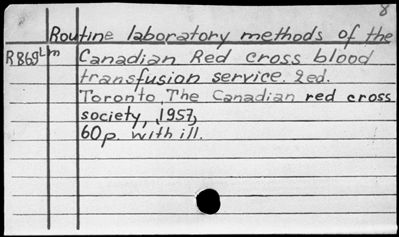 8
Routine laboratory methods of the
R869Lm Canadian Red cross blood
transfusion service. 2ed.
Toronto, The Canadian red cross
society, 1957,
60p. with ill.